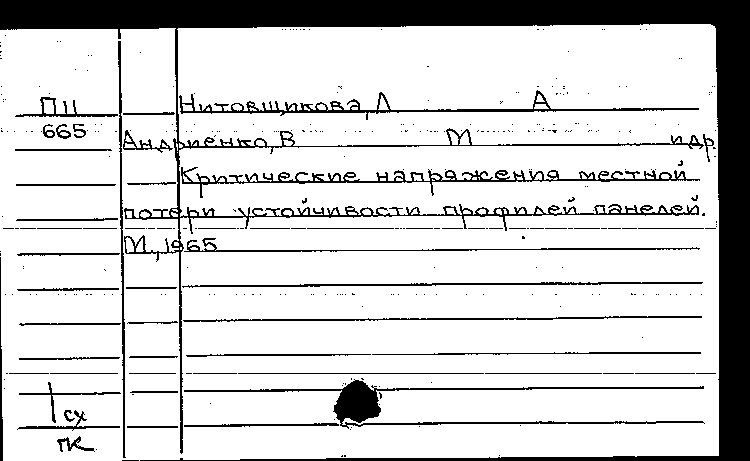 П11 Нитовщикова, Л А
665 Андриенко, В М и др
Критические напряжения местной
потери устойчивости профилей панелей.
М., 1965
1 сх
ПК